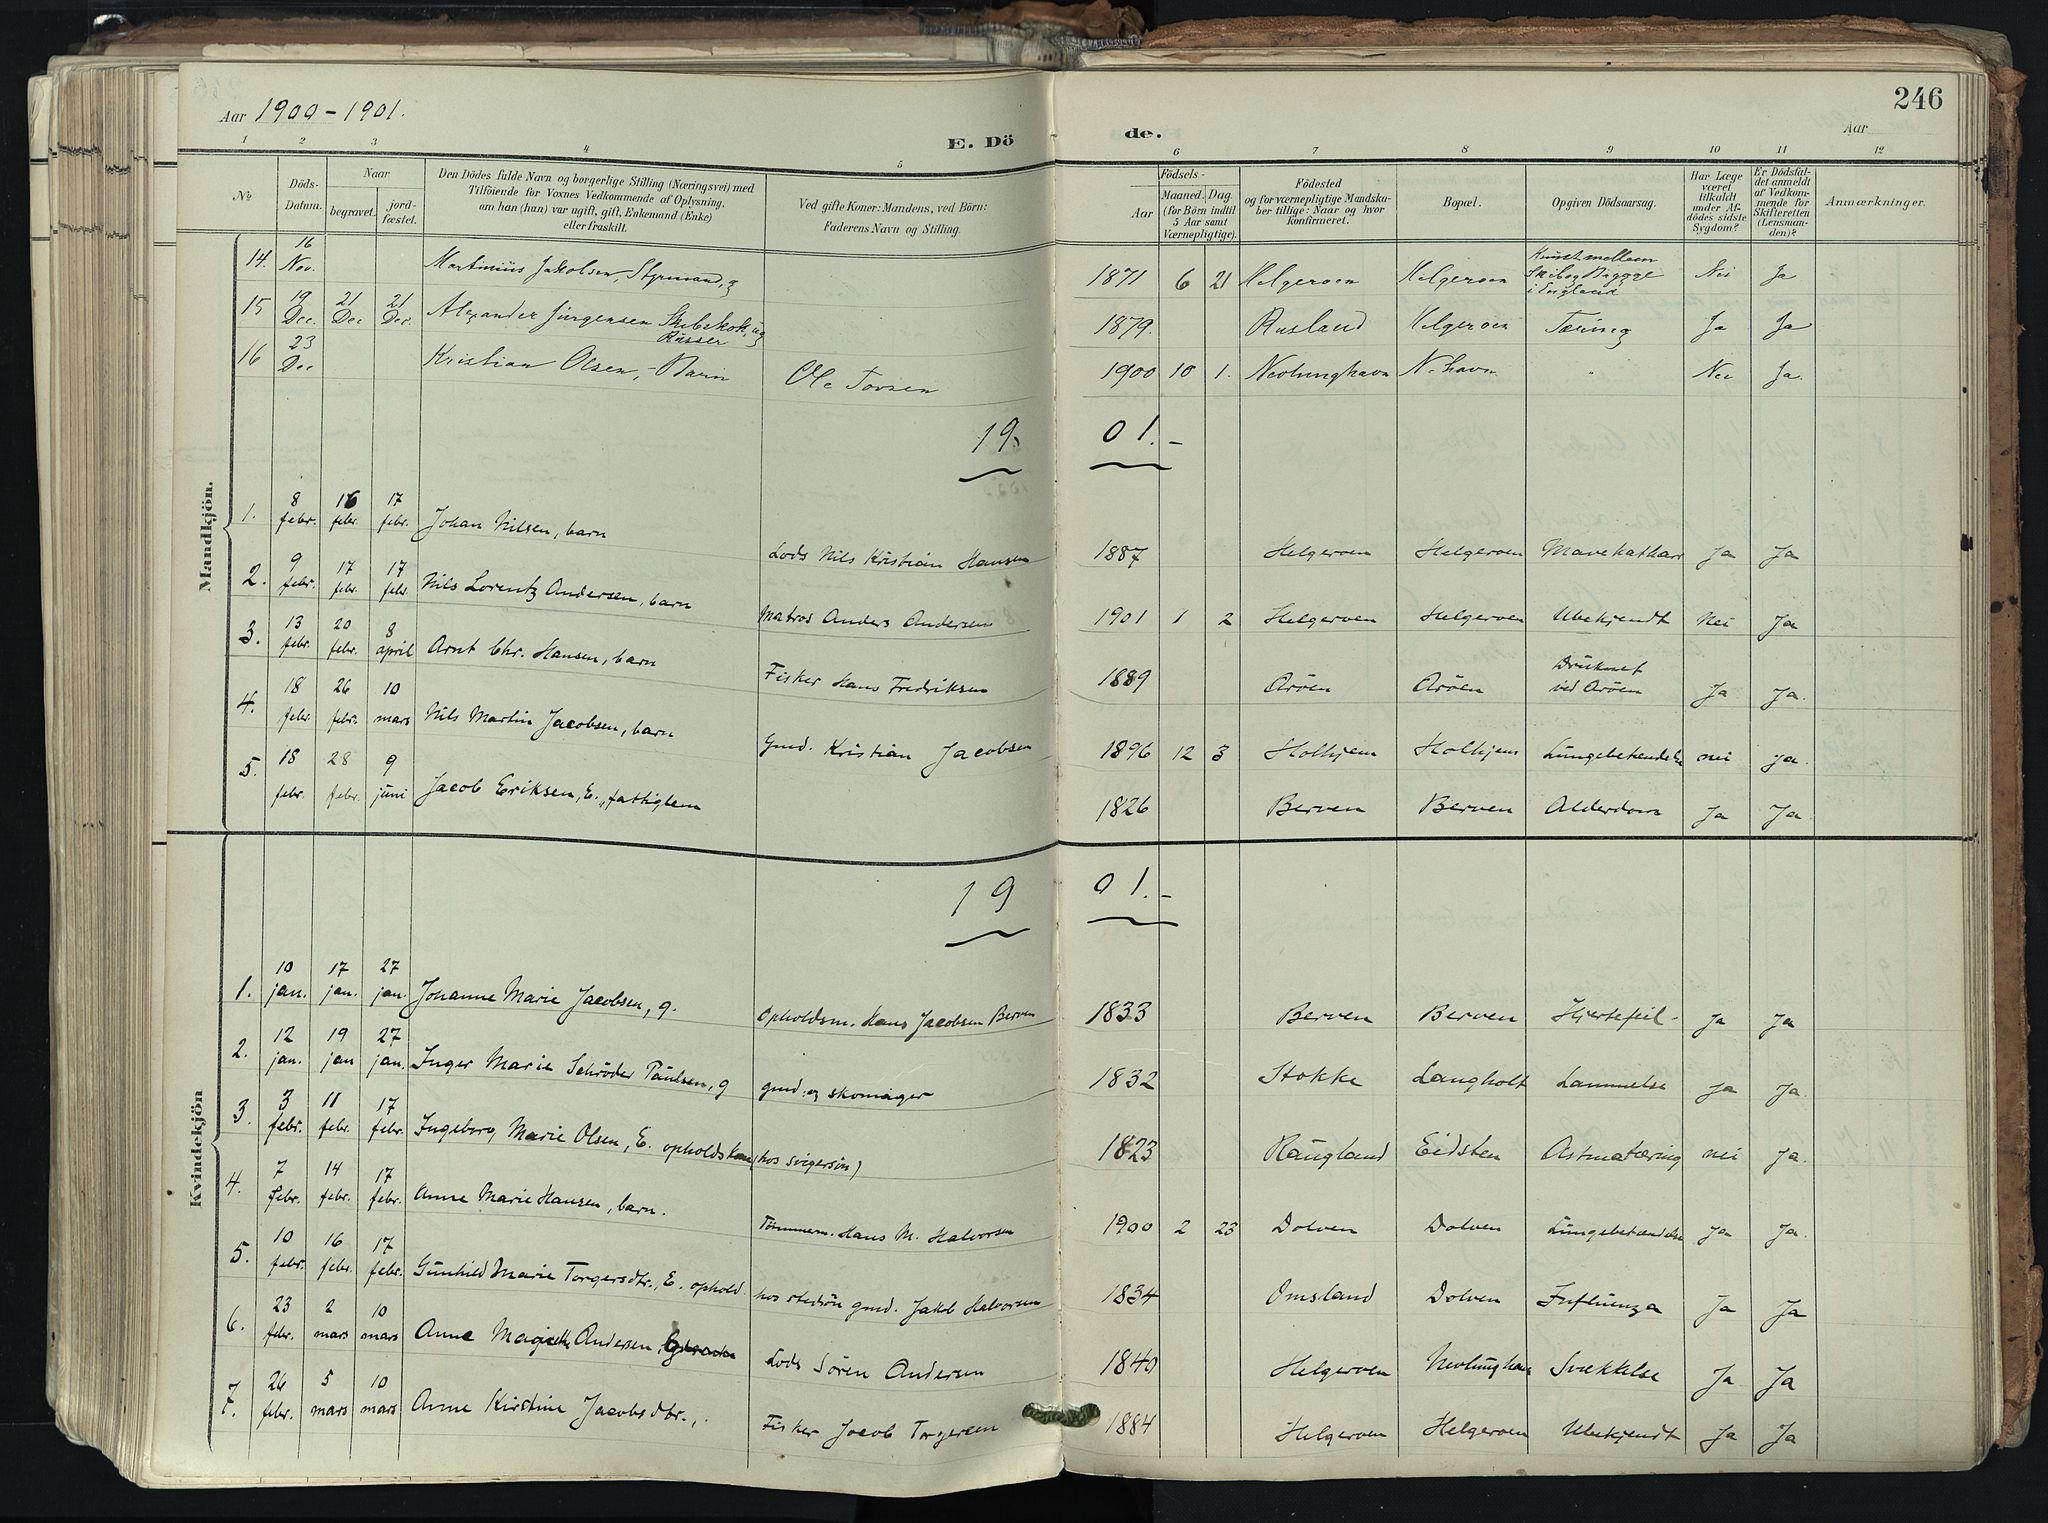 246
Aar 1900-1901.
E. Dö
de.
Aar
1 2 3 4 5 6 7 8 9 10 11 12
No
Döds-Datum.
Naar
begravet.
jord-fæstet.
Den Dödes fulde Navn og borgerlige Stilling (Næringsvei) med
Tilföiende for Voxnes Vedkommende af Oplysning,
om han (hun) var ugift, gift, Enkemand (Enke)
eller fraskilt.
Ved gifte Koner: Mandens, ved Börn:
Faderens Navn og Stilling.
Födsels-
Aar
Maaned. Dag
(for Börn indtil
5 Aar samt
Værnepligtige).
Födested
og for værnepligtige Mandska-
ber tillige: Naar og hvor
konfirmeret.
Bopæl.
Opgiven Dödsaarsag.
Har Læge
været
tilkaldt
under Af-
dödes sidste
Sygdom?
Er Dödsfal-
det anmeldt
af Vedkom-
mende for
Skifteretten
(Lensman-
den)?
Anmærkninger.
Mandkjön.
14. 16 Nov. Martinius Jakobsen, Styrmand, g 1871 6 21 Helgeroen Helgeroen Knust mellem Skib og Brygge i England Nei Ja
15 19 Dec. 21 Dec 21 Dec. Alexander Jürgensen Skibskok, ug Russer 1879. Rusland Helgeroen Tæring Ja Ja
16 23 Dec Kristian Olsen, - Barn Ole Tovsen 1900 10 1. Nevlunghavn N-havn " Nei Ja.
19 01.-
1. 8 febr. 16 febr. 17 febr. Johan Nilsen, barn Lods Nils Kristian Hansen 1887 Helgeroen Helgeroen Mavekatharr Ja Ja
2. 9 febr. 17 febr. 17 febr. Nils Lorentz Andersen, barn Matros Anders Andersen 1901 1 2 Helgeroen Helgeroen Ubekjendt Nei Ja
3. 13 febr. 20 febr. 8 april Arnt Chr. Hansen, barn Fisker Hans Fredriksen 1889 Arøen Arøen Druknet ved Arøen Ja Ja.
4. 18 febr. 26 febr. 10 mars Nils Martin Jacobsen, barn Gmd. Kristian Jacobsen 1896 12 3 Holhjem Holhjem Lungebetændelse nei ja.
5. 18 febr. 28 febr. 9 juni Jacob Eriksen, E., fattiglem 1826 Berven Berven Alderdom Ja Ja.
Kvindekjön
19 01.-
1. 10 jan. 17 jan. 27 jan. Johanne Marie Jacobsen, g. Opholdsm. Hans Jacobsen Berven 1833 Berven Berven Hjertefeil. Ja Ja
2. 12 jan. 19 jan 27 jan. Inger Marie Schrøder Paulsen, g gmd. og skomager 1832 Stokke Langholt Lammelse Ja Ja.
3. 3 febr. 11 febr. 17 febr. Ingeborg Marie Olsen, E. opholdskone (hos svigersøn) 1823 Raugland Eidsten Astmatæring nei Ja.
4. 7 febr. 14 febr. 17 febr. Anne Marie Hansen, barn. Tømmerm. Hans M. Halvorsen 1900 2 23 Dolven Dolven Lungebetændelse Ja Ja.
5. 10 febr. 16 febr. 17 febr. Gunhild Marie Torgersdtr., E. ophold hos stedsøn gmd. Jakob Halvorsen 1834 Omsland Dolven Influenza Ja Ja
6. 23 febr. 2 mars 10 mars Anne Andersen, Lods Søren Andersen 1840 Helgeroen Nevlunghavn Svækkelse Ja Ja
7. 26 febr. 5 mars 10 mars Anne Kirstine Jacobsdtr., Fisker Jacob Torgersen 1884 Helgeroen Helgeroen Ubekjendt Ja Ja